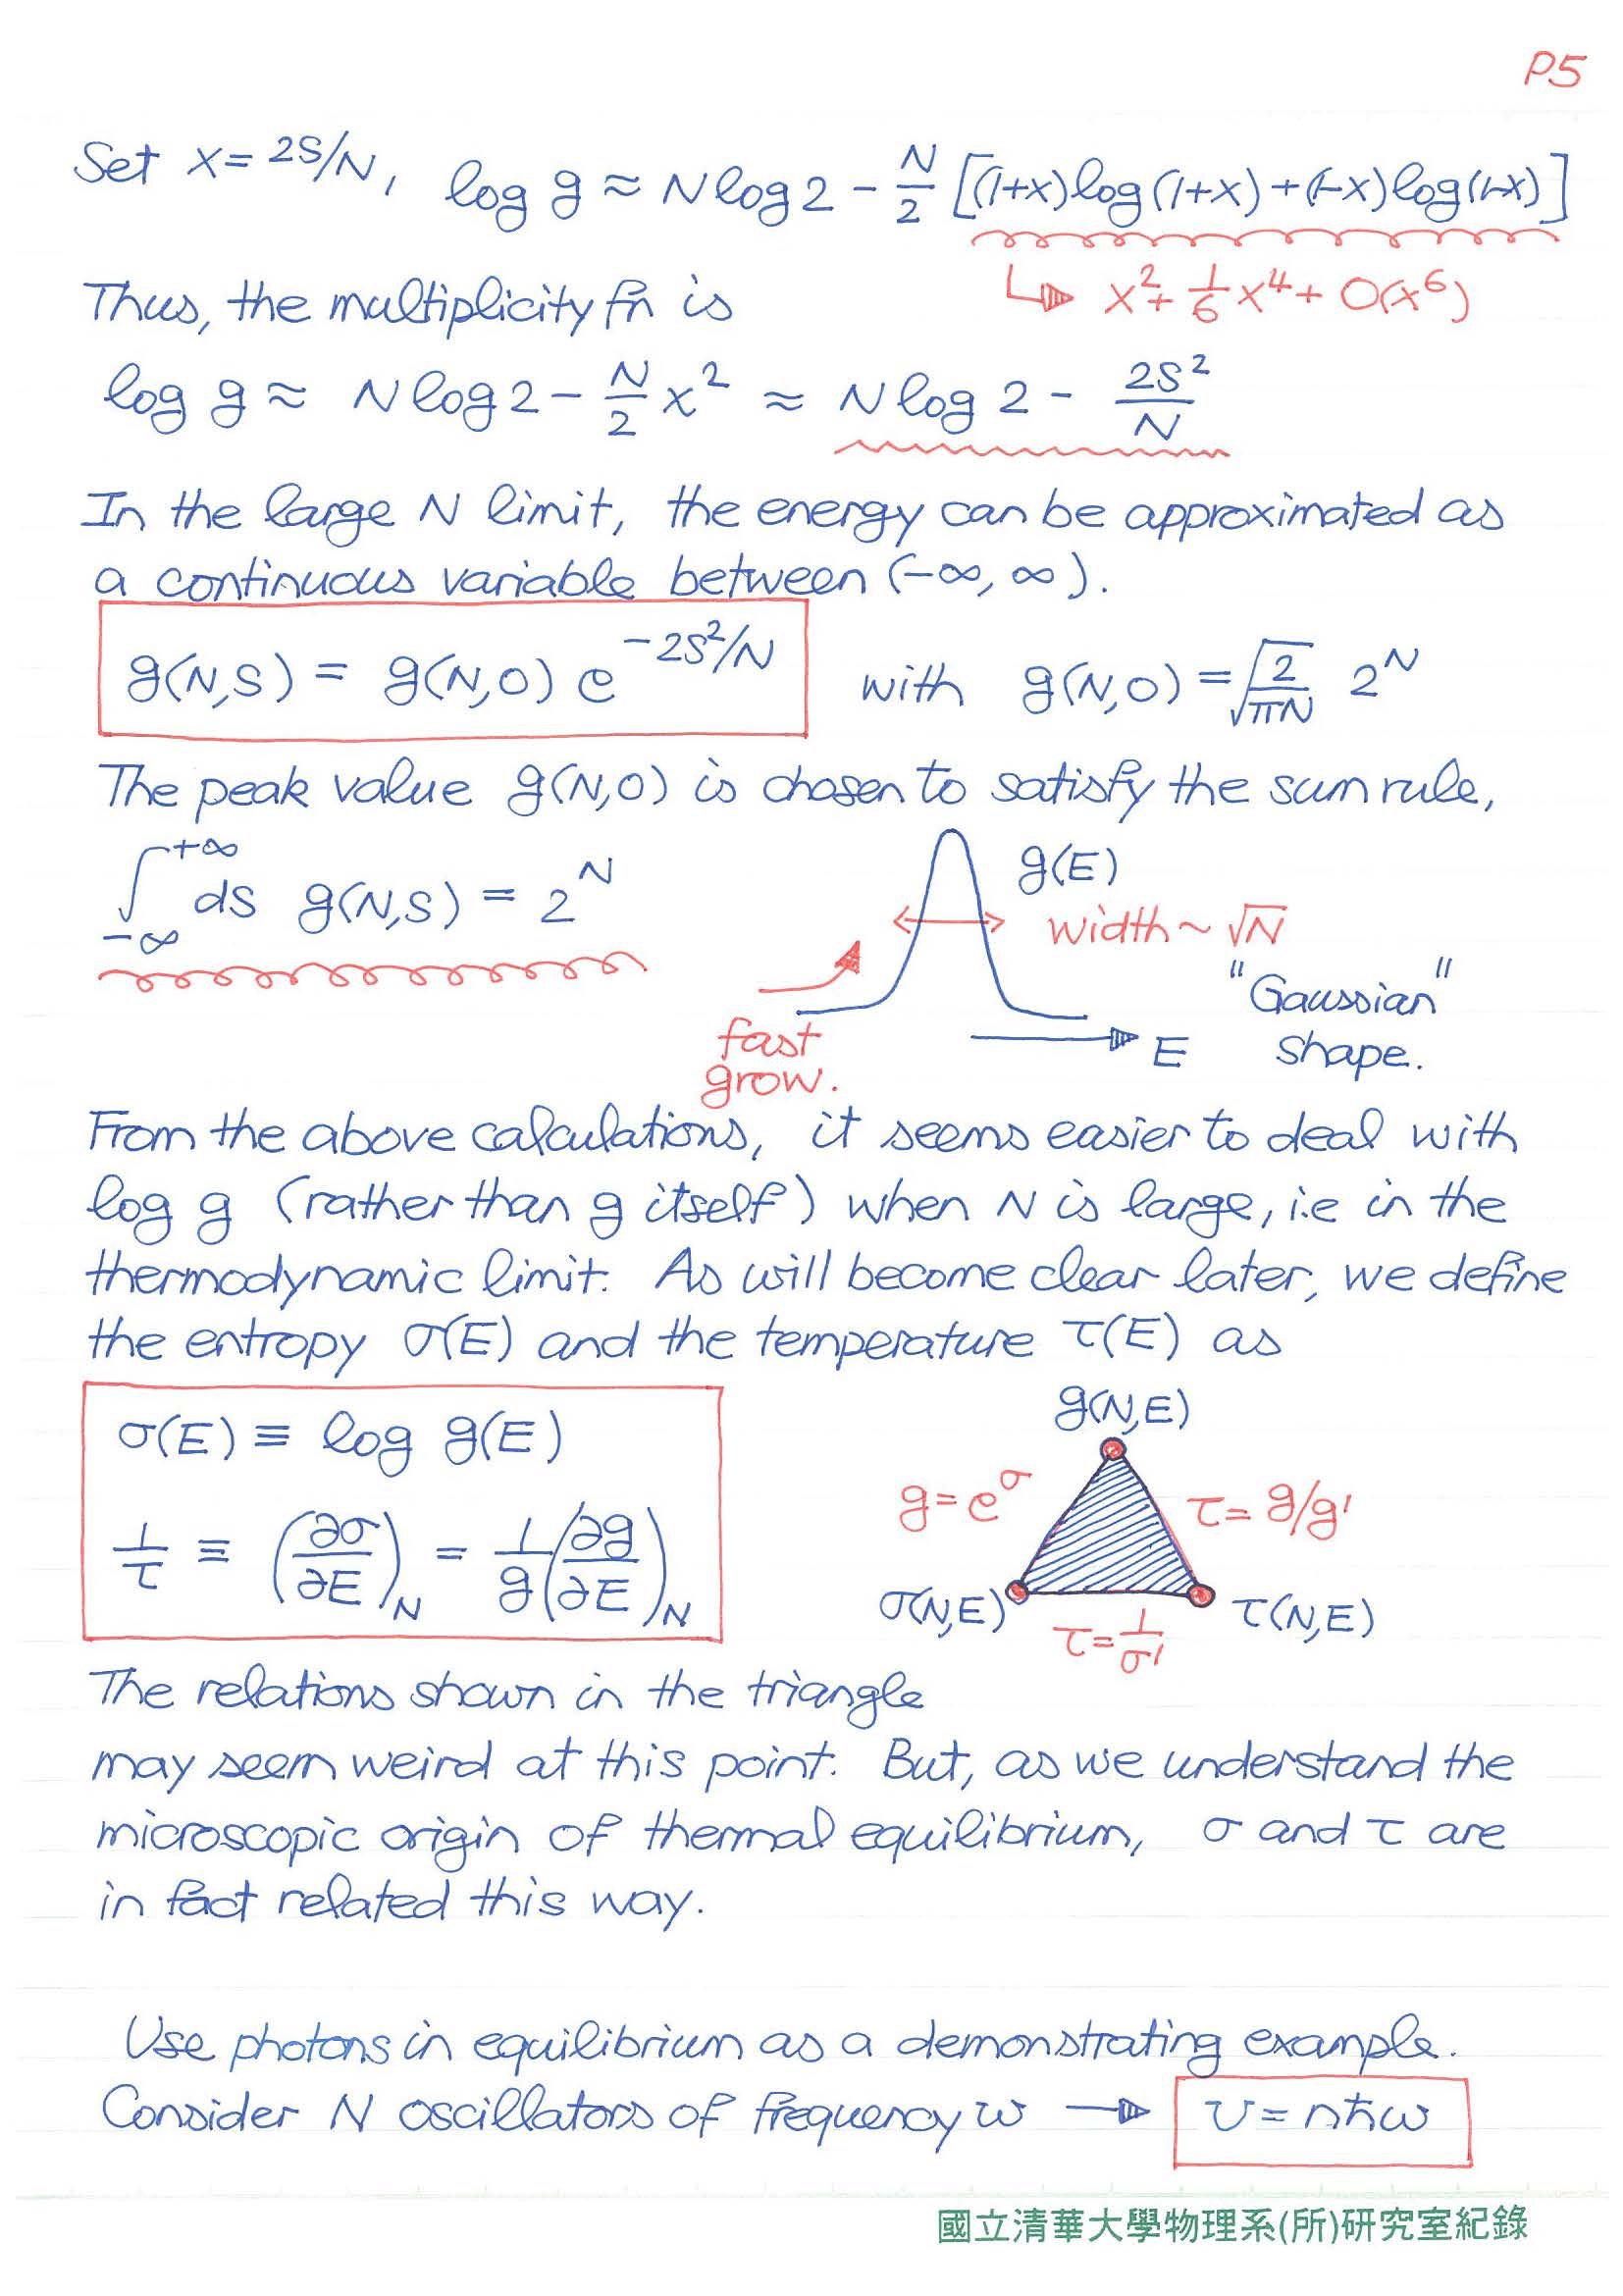 P5
Set x = 2S/N, log g ≈ N log 2 - N/2 [(1+x)log(1+x)+(1-x)log(1-x)]
↳ x² + 1/6 x⁴ + O(x⁶)
Thus, the multiplicity fn is
log g ≈ N log 2 - N/2 x² ≈ N log 2 - 2S²/N
In the large N limit, the energy can be approximated as
a continuous variable between (-∞, ∞).
g(N,S) = g(N,0) e^{-2S²/N} with g(N,0) = √(2/πN) 2^N
The peak value g(N,0) is chosen to satisfy the sum rule,
∫_{-∞}^{+∞} dS g(N,S) = 2^N
g(E)
width ~ √N
"Gaussian"
shape.
fast
grow.
E
From the above calculations, it seems easier to deal with
log g (rather than g itself) when N is large, i.e in the
thermodynamic limit. As will become clear later, we define
the entropy σ(E) and the temperature τ(E) as
σ(E) ≡ log g(E)
1/τ ≡ (∂σ/∂E)_N = 1/g (∂g/∂E)_N
g(N,E)
g = e^σ τ = g/g'
σ(N,E) τ(N,E)
τ = 1/σ'
The relations shown in the triangle
may seem weird at this point. But, as we understand the
microscopic origin of thermal equilibrium, σ and τ are
in fact related this way.
Use photons in equilibrium as a demonstrating example.
Consider N oscillators of frequency ω → U = nħω
國立清華大學物理系(所)研究室紀錄